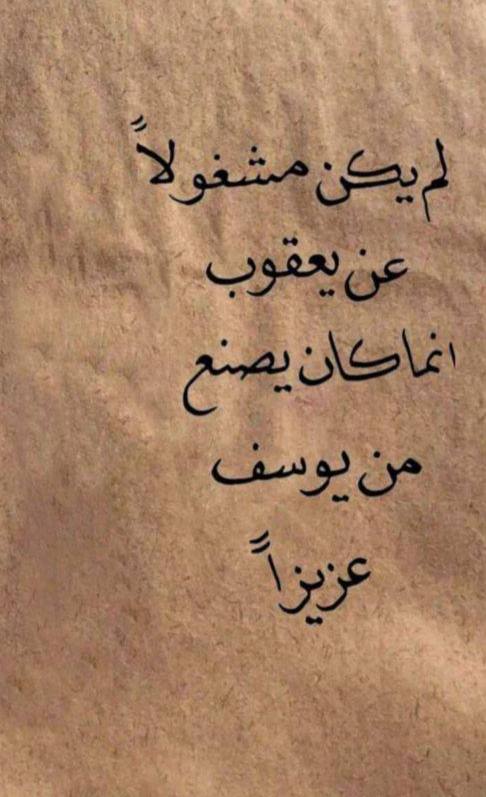 لم يكن مشغولاً
عن يعقوب
انما كان يصنع
من يوسف
عزيزاً